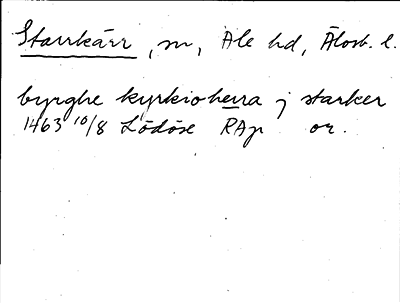 Starrkärr, sn, Ale hd, Älvsb. l.
byrghe kyrkioherra j starker
1463 10/8 Lödöse RAp or.